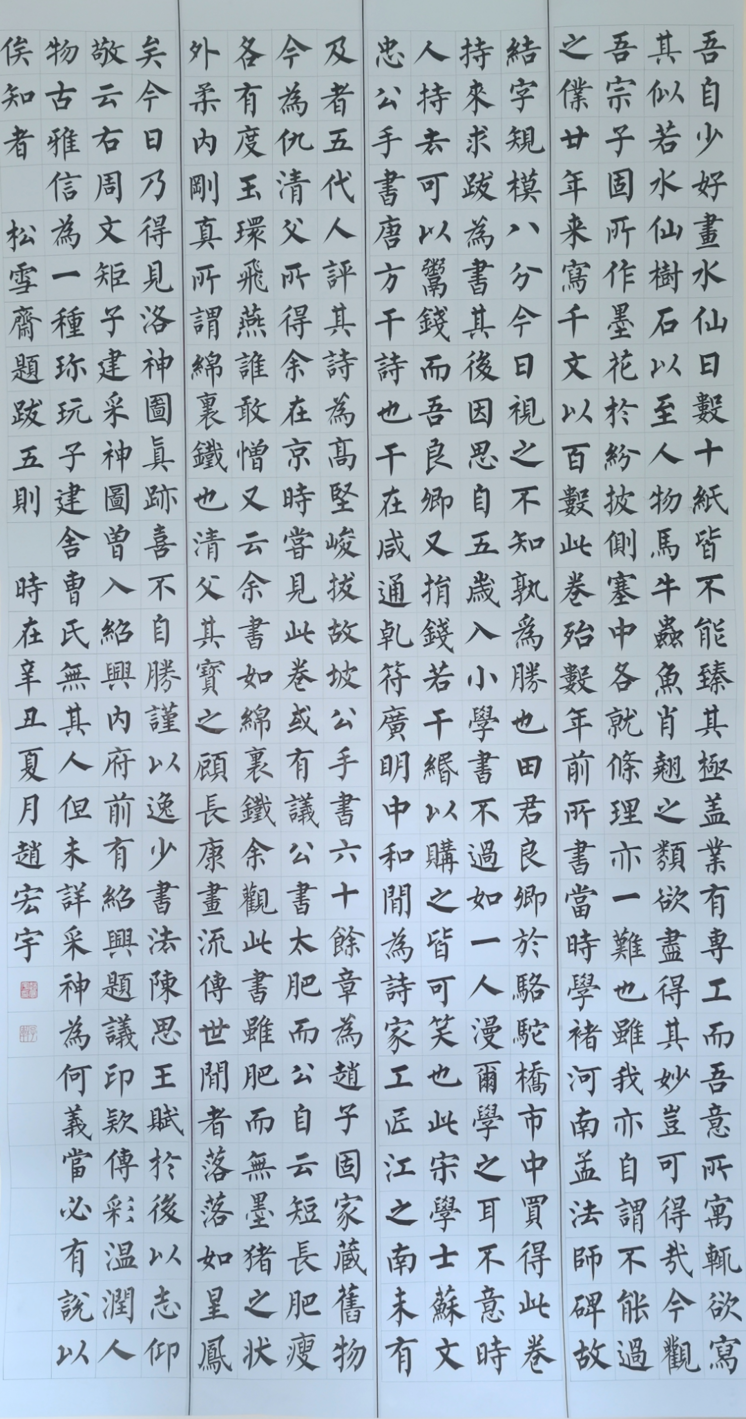 吾自少好畫水仙日數十紙皆不能臻其極盖業有專工而吾意所寓輒欲寫
其似若水仙樹石以至人物馬牛蟲魚肖翹之類欲盡得其妙豈可得哉今觀
吾宗子固所作墨花於紛披側塞中各就條理亦一難也雖我亦自謂不能過
之僕廿年来寫千文以百數此卷殆數年前所書當時學褚河南孟法師碑故
結字規模八分今日視之不知孰為勝也田君良卿於駱駝橋市中買得此卷
持來求跋為書其後因思自五歲入小學書不過如一人漫爾學之耳不意時
人持去可以鬻錢而吾良卿又捐錢若干緡以購之皆可笑也此宋學士蘇文
忠公手書唐方干詩也干在咸通乹符廣明中和間為詩家工匠江之南未有
及者五代人評其詩為高堅峻拔故坡公手書六十餘章為趙子固家蔵舊物
今為仇清父所得余在京時嘗見此卷或有議公書太肥而公自云短長肥瘦
各有度玉環飛燕誰敢憎又云余書如綿裏鐵余觀此書雖肥而無墨猪之狀
外柔內剛真所謂綿裏鐵也清父其寳之顧長康畫流傳世間者落落如星鳳
矣今日乃得見洛神圖眞跡喜不自勝謹以逸少書法陳思王賦於後以志仰
敬云右周文矩子建采神圖曽入紹興內府前有紹興題議印欵傳彩温潤人
物古雅信為一種珎玩子建舍曹氏無其人但未詳采神為何義當必有說以
俟知者 松雪齋題跋五則 時在辛丑夏月趙宏宇